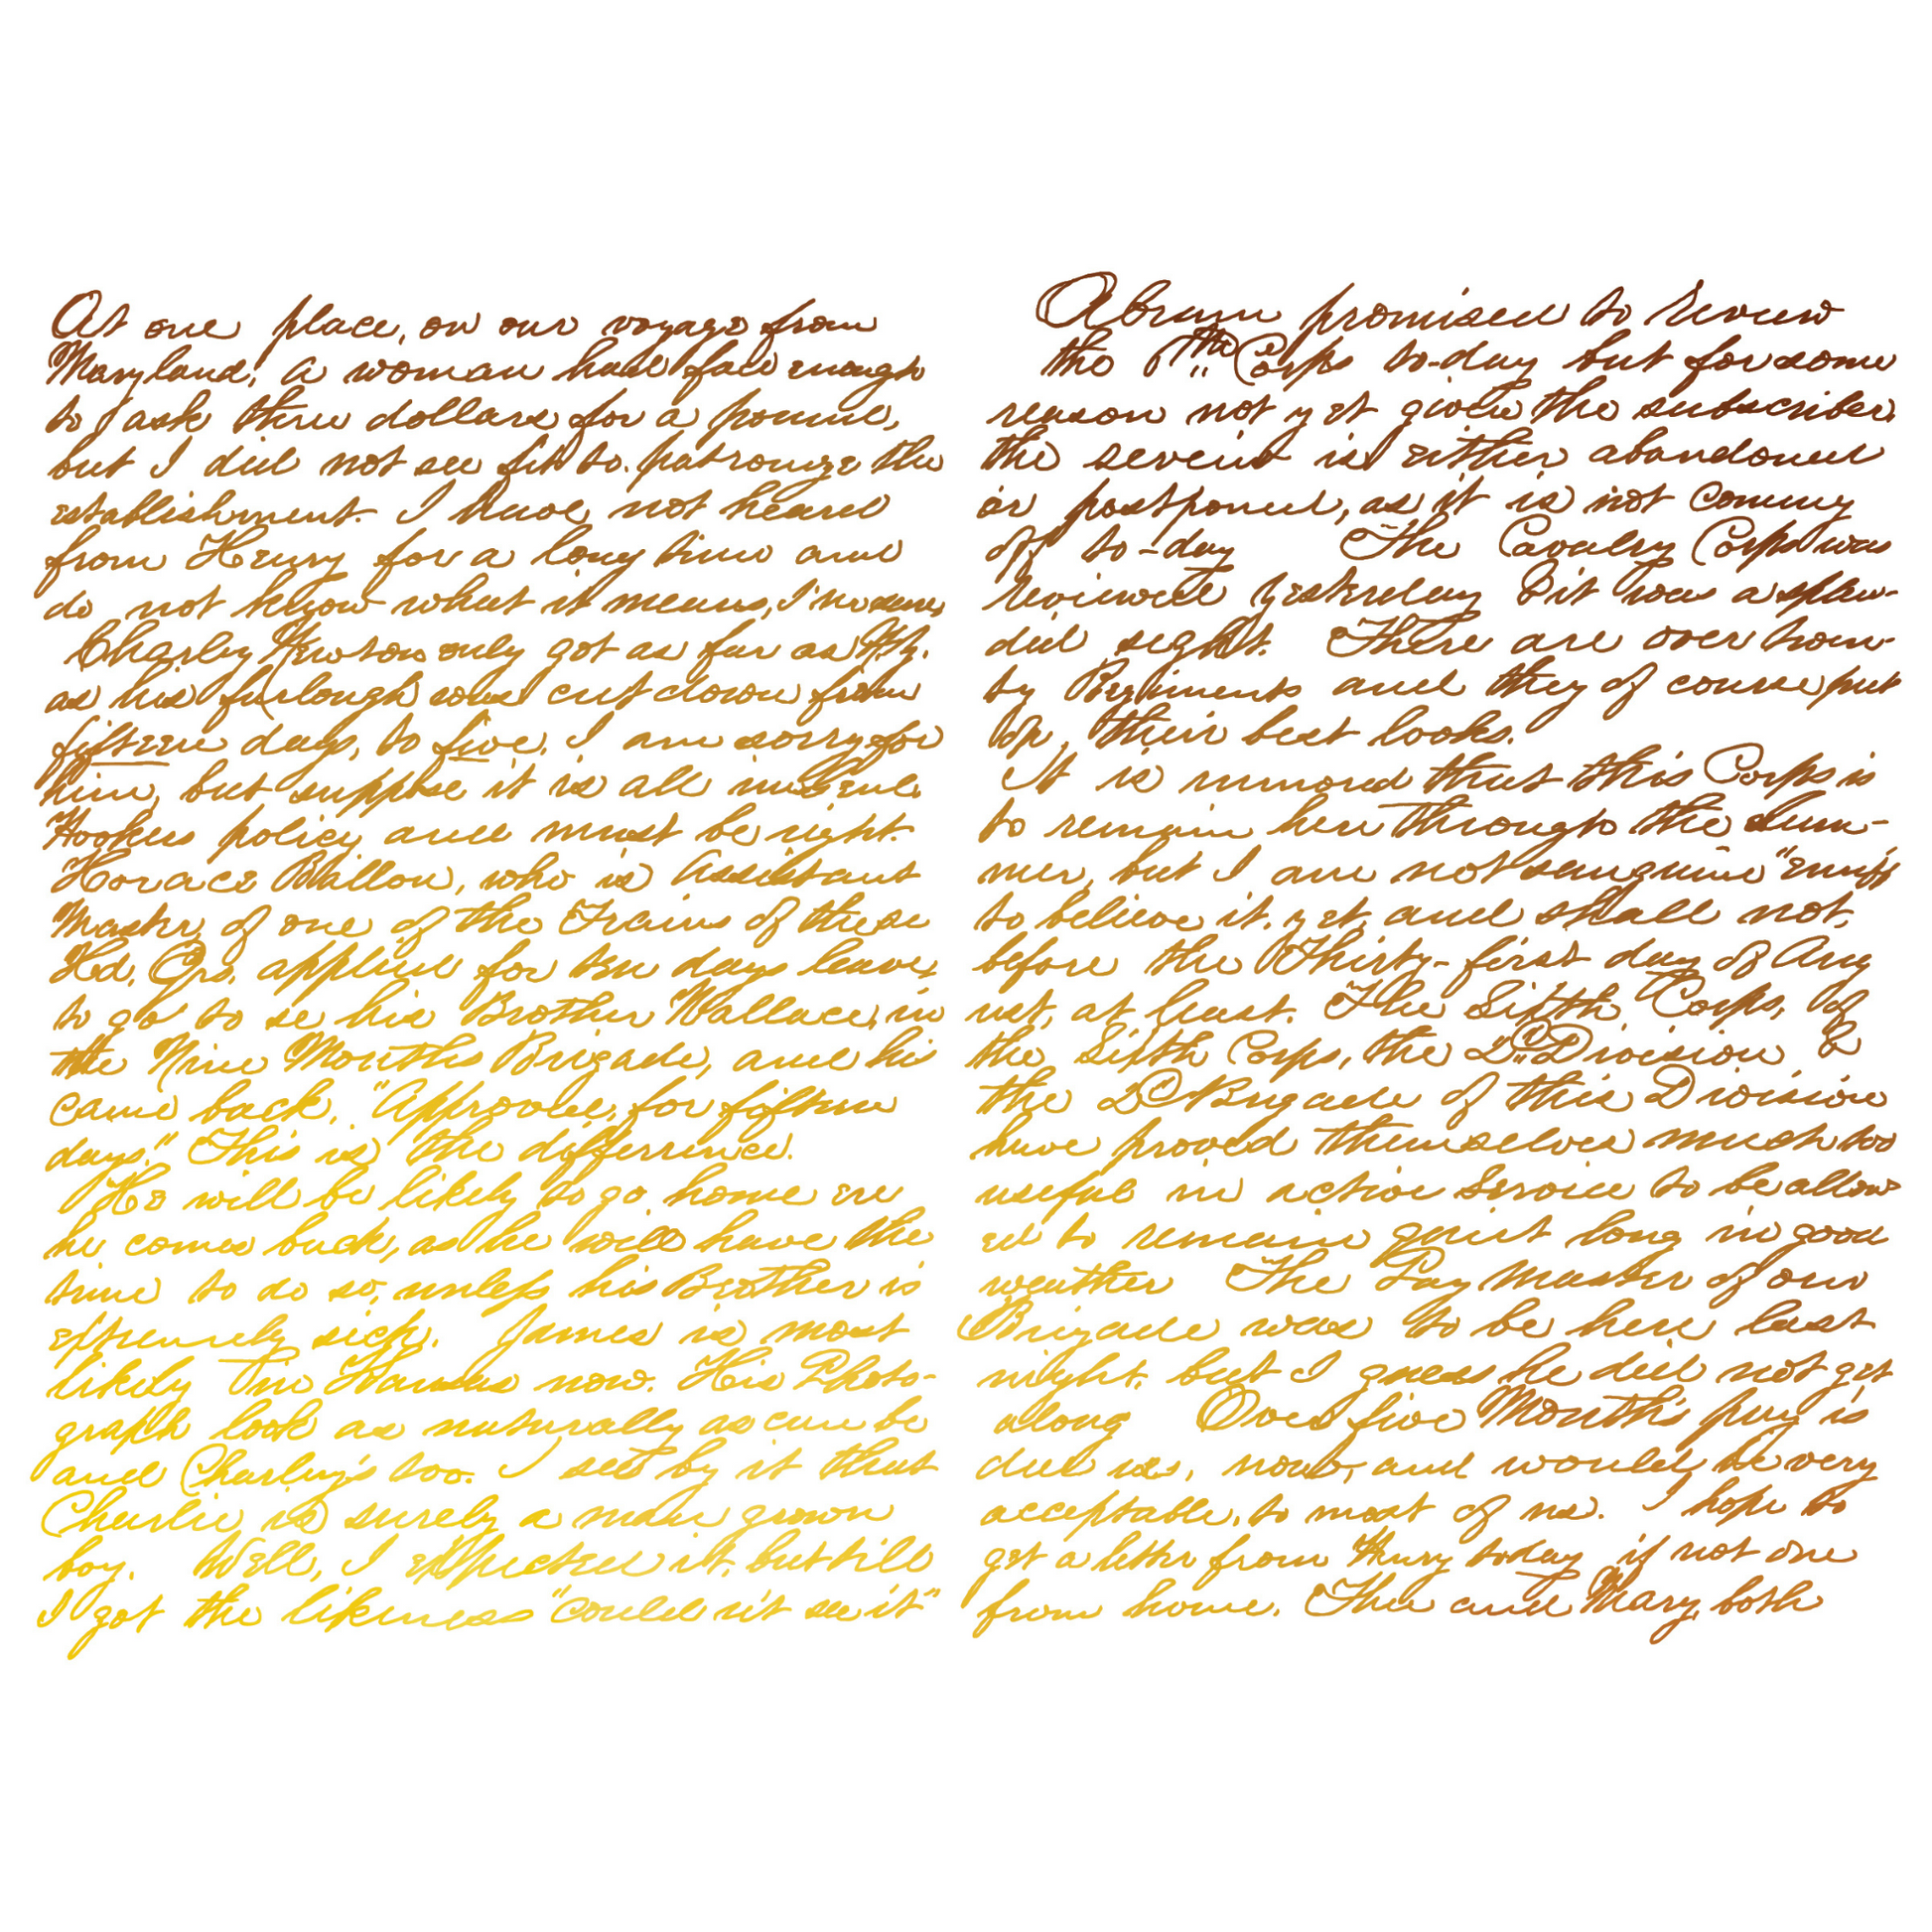 At one place, on our voyage from
Maryland, a woman had face enough
to ask three dollars for a
but I did not see fit to patronize the
establishment. I have not heard
from Henry for a long time and
do not know what it means,
Charley Hewson only got as far as
as his furlough was cut down from
fifteen days, to five. I am sorry for
him, but suppose it is all in
Hookers policy and must be right.
Horace Ballou, who is Assistant
Master of one of the Trains of these
Hd. Qrs. applied for ten days leave,
to go to se his Brother Wallace, in
the Nine Months Brigade, and his
came back, "Approved, for fifteen
days." This is the difference.
He will be likely to go home ere
he comes back, as he will have the
time to do so, unless his Brother is
extremely sick. James is most
likely in Kansas now. His Photo-
graph look as naturally as can be
and Charley's too. I see by it that
Charlie is surely a man grown
boy. Well, I expected it, but till
I got the likeness "could n't see it"
Abram promised to review
the Corps to-day but for some
reason not yet given the subscriber,
the event is either abandoned
or postponed, as it is not coming
off to-day The Cavalry Corps was
reviewed yesterday & it was a splen-
did sight. There are over twen-
ty Regiments and they of course put
on their best looks.
It is rumored that this Corps is
to remain here through the Sum-
mer, but I am not sanguine "enuff
to believe it, yet, and shall not,
before the Thirty-first day of Aug
ust, at least. The Sixth Corps, Of
the Sixth Corps, the 2d Division &
the 2d Brigade of this Division
have proved themselves much too
useful in active Service to be allow
ed to remain quiet long in good
weather The Pay Master of our
Brigade was to be here last
night, but I guess he did not get
along Over five Months pay is
due us, now, and would be very
acceptable, to most of us. I hope to
get a letter from Henry today, if not one
from home. Thee and Mary, both